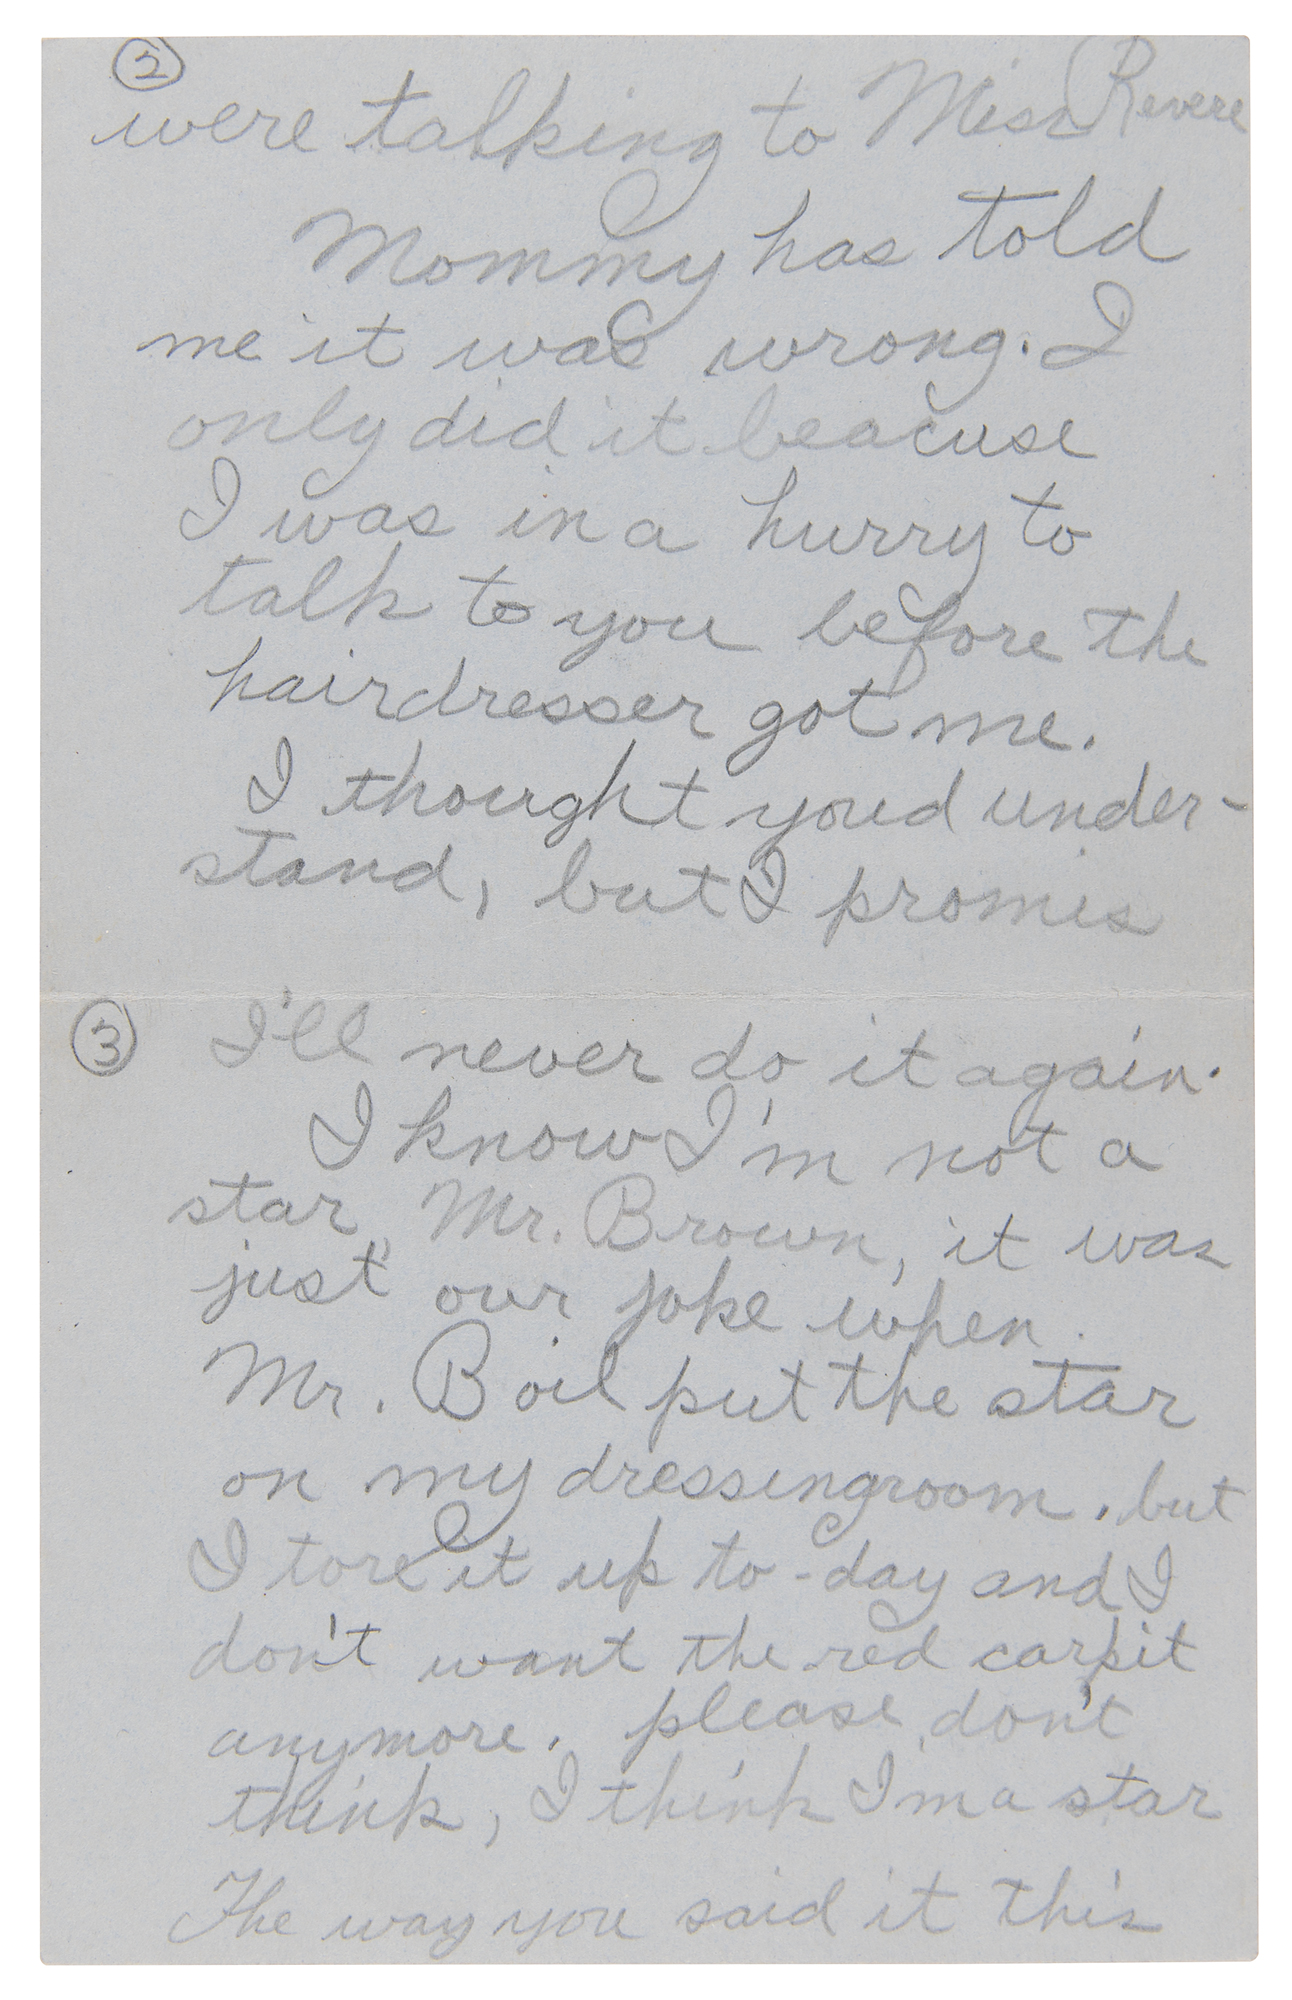 2
were talking to Miss Revere
Mommy has told
me it was wrong. I
only did it beacuse
I was in a hurry to
talk to you before the
hairdresser got me.
I thought youd under-
stand, but I promis
3 I'll never do it again.
I know I'm not a
star, Mr. Brown, it was
just our joke when
Mr. Boil put the star
on my dressingroom. but
I tore it up to-day and I
don't want the red carpit
anymore. please don't
think, I think I'm a star
The way you said it this